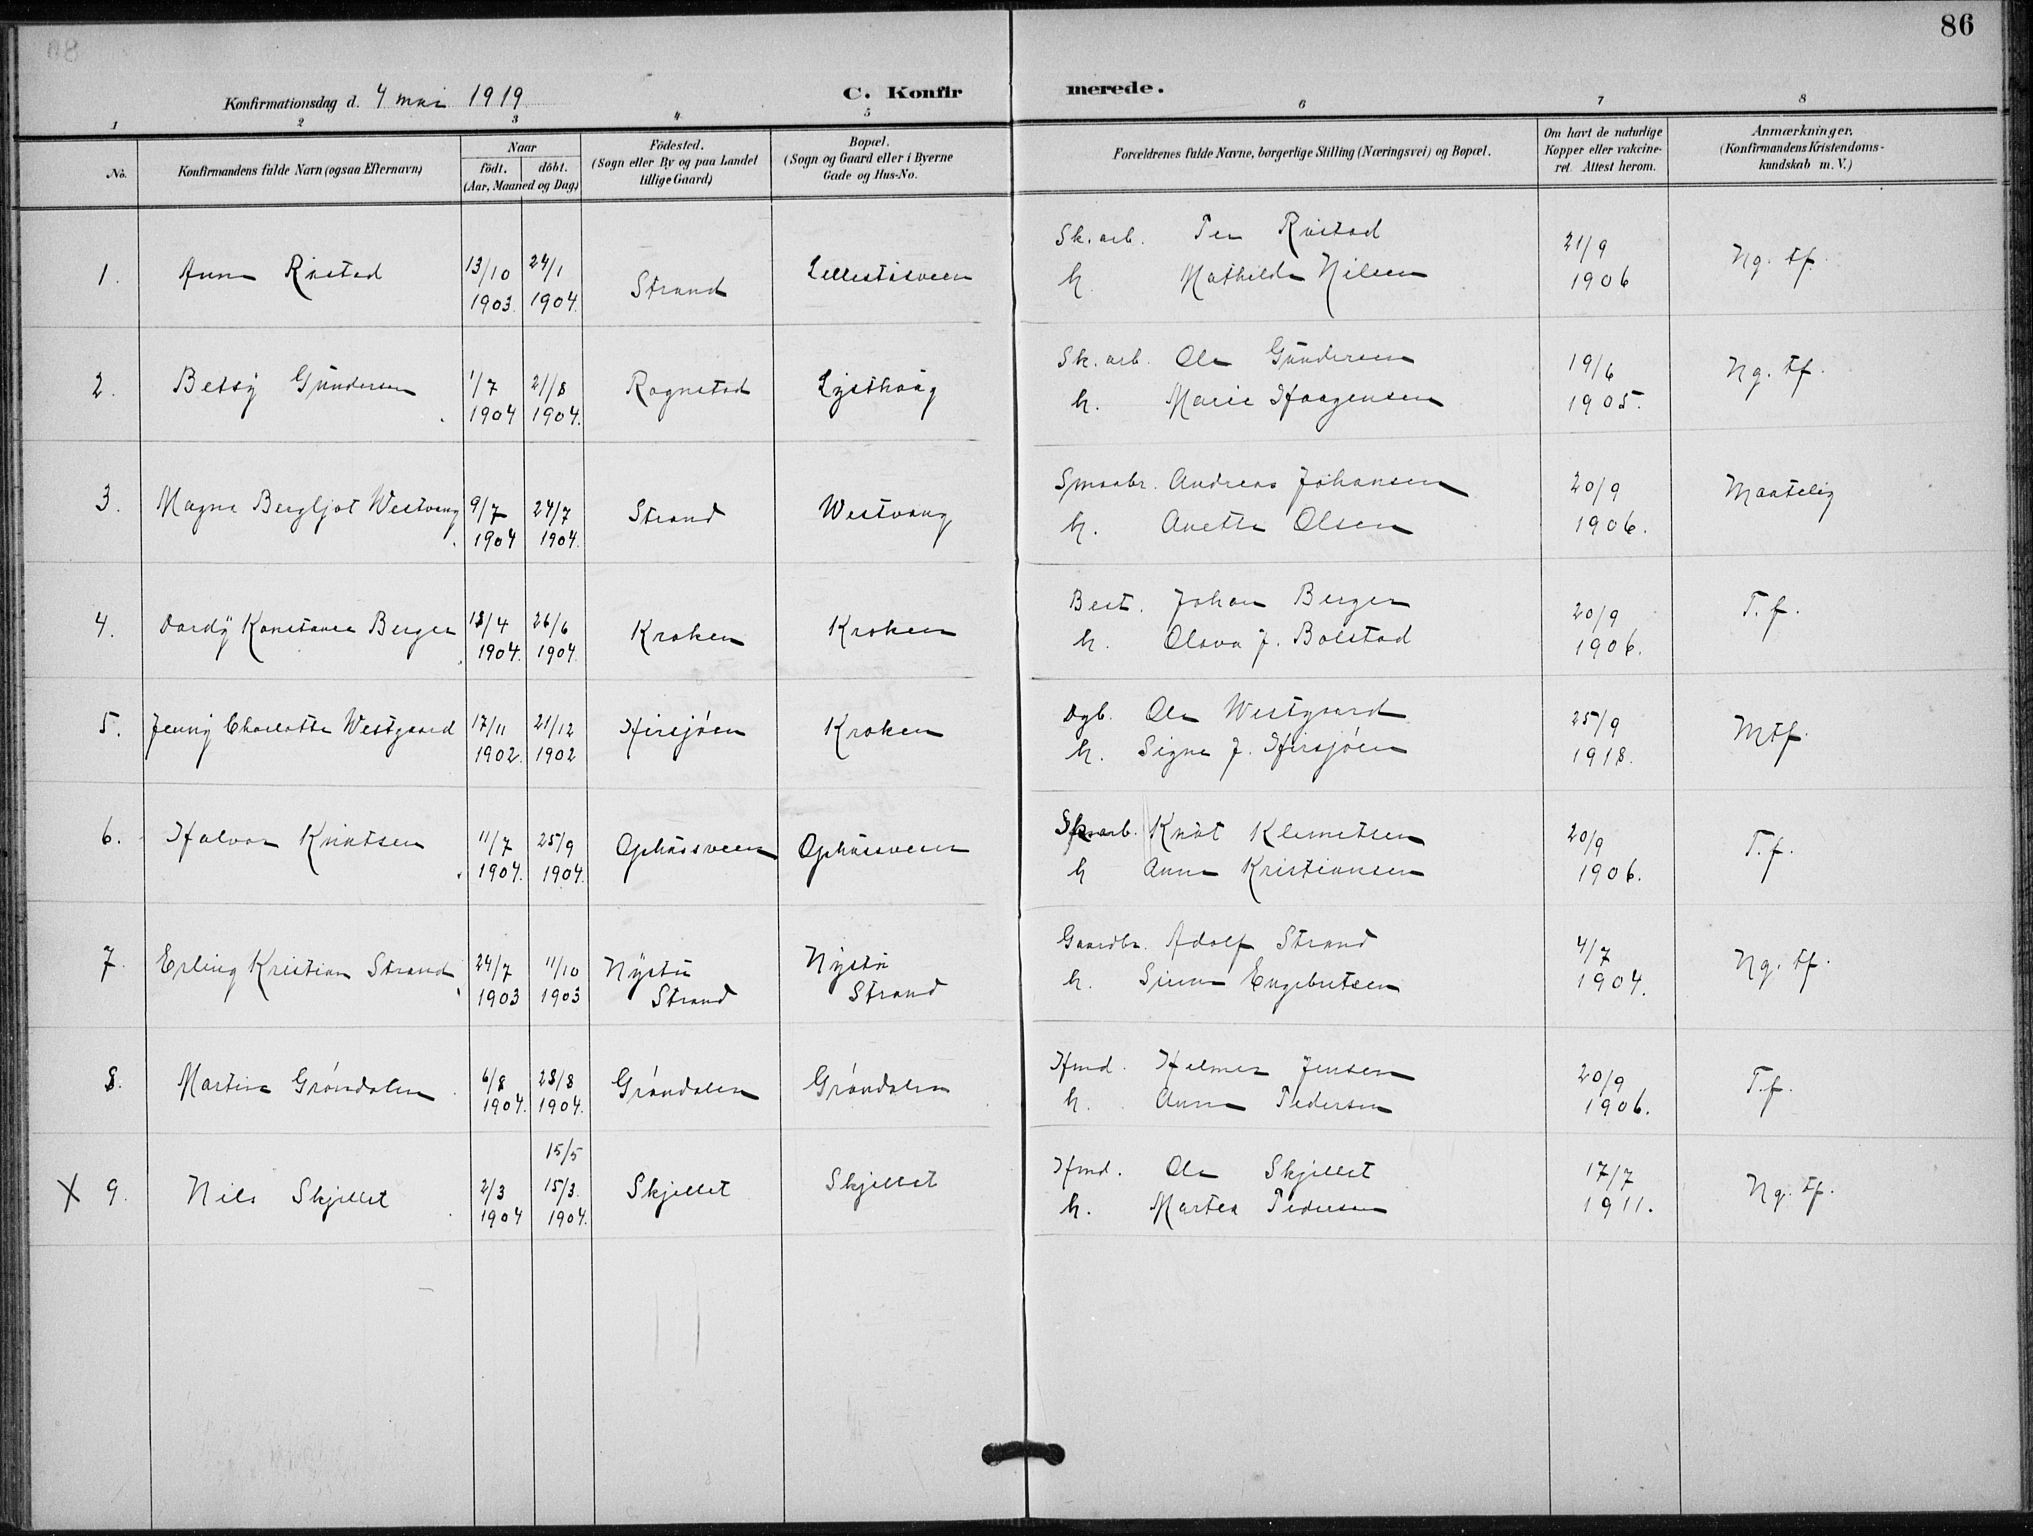 86
Konfirmationsdag d. 4 mai 1919
C. Konfirmerede.
1 2 3 4 5 6 7 8
No.
Konfirmandens fulde Navn (ogsaa Efternavn)
Naar
födt. döbt.
(Aar, Maaned og Dag)
Födested.
(Sogn eller By og paa Landet
tillige Gaard)
Bopæl.
(Sogn og Gaard eller i Byerne
Gade og Hus-No.
Forældrenes fulde Navne, borgerlige Stilling (Næringsvei) og Bopæl.
Om havt de naturlige
Kopper eller vakcine-
ret. Attest herom.
Anmærkninger,
(Konfirmandens Kristendoms-
kundskab m. V.)
1. Anna Rustad 13/10 1903 24/1 1904. Strand Lillestuveen
Sk. arb. Per Rustad 21/9
h. Mathilde Nilsen 1906 Ng. tf.
2. Betsy Gundersen 1/7 1904 21/8 1904. Rognstad Lysthaug
Sk. arb. Ole Gundersen 19/6
h. Marie Haagensen 1905. Ng. tf.
3. Magna Bergljot Westvang 9/7 1904 24/7 1904. Strand Westvang
Smaabr. Andreas Johansen 20/9
h. Anette Olsen 1906. Maatelig
4. Dordy Konstanse Berger 18/4 1904. 26/6 1904. Kroken Kroken
Best. Johan Berger 20/9
h. Olava J. Bolstad 1906. T. f.
5. Jenny Charlotte Westgaard 17/11 1902. 21/12 1902 Hirsjöen Kroken
Dgb. Ole Westgaard 25/9
h. Signe J. Hirsjöen 1918. Mtf.
6. Halvor Knutsen 11/7 1904. 25/9 1904. Ophusveen Ophusveen
Sk. arb. Knut Klemetsen 20/9
h Anna Kristiansen 1906. T. f.
7. Erling Kristian Strand 24/7 1903 11/10 1903 Nystu Strand Nystu Strand
Gaardbr. Adolf Strand 4/7
h. Sina Engebretsen 1904. Ng. tf.
8. Martin Gröndalen 6/8 1904. 28/8 1904. Gröndalen Gröndalen
Hmd. Helmer Jensen 20/9
h. Anna Pedersen 1906. T. f.
15/5
X 9. Nils Skjellet 2/3 1904 15/3 1904. Skjellet Skjellet
Hmd. Ole Skjellet 17/7
h. Martea Pedersen 1911. Ng. tf.